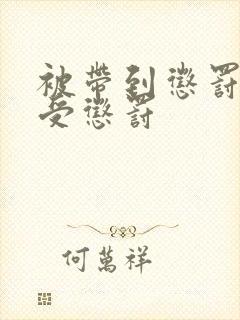 被帶到懲罰
受懲罰
何萬祥